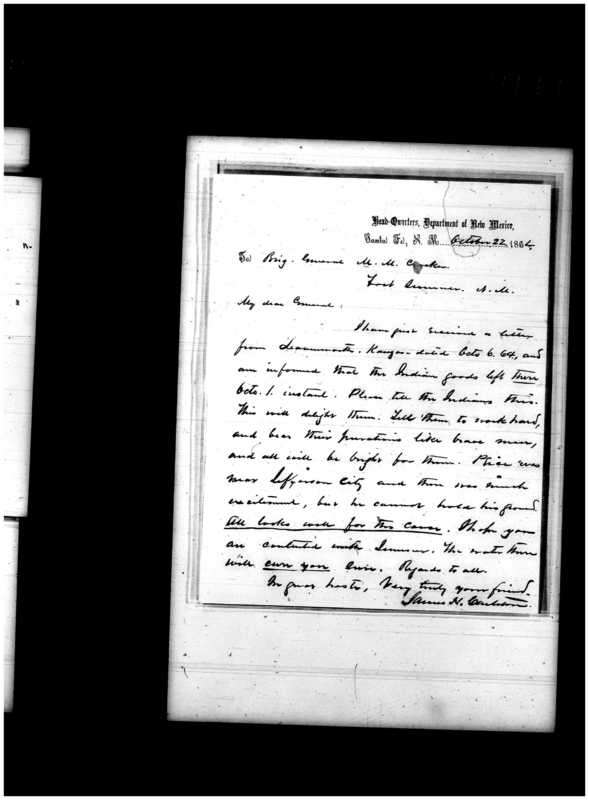 n-
Head-Quarters, Department of New Mexico,
Santa Fé, N. M. October 22 1864.
To Brig. General M. M. Crocker
Fort Sumner. N. M.
My dear General.
I have just received a letter
from Leavenworth. Kansas dated Octo 6. 64, and
am informed that the Indian goods left there
Octo. 1. instant. Please tell the Indians this.
This will delight them. Tell them to work hard,
and bear their privations like brave men,
and all will be bright for them. Price was
near Jefferson City and there was much
excitement, but he cannot hold his ground.
All looks well for the cause. I hope you
are contented with Sumner. The water there
will cure your liver. Regards to all.
In great haste, Very truly your friend.
James H. Carleton